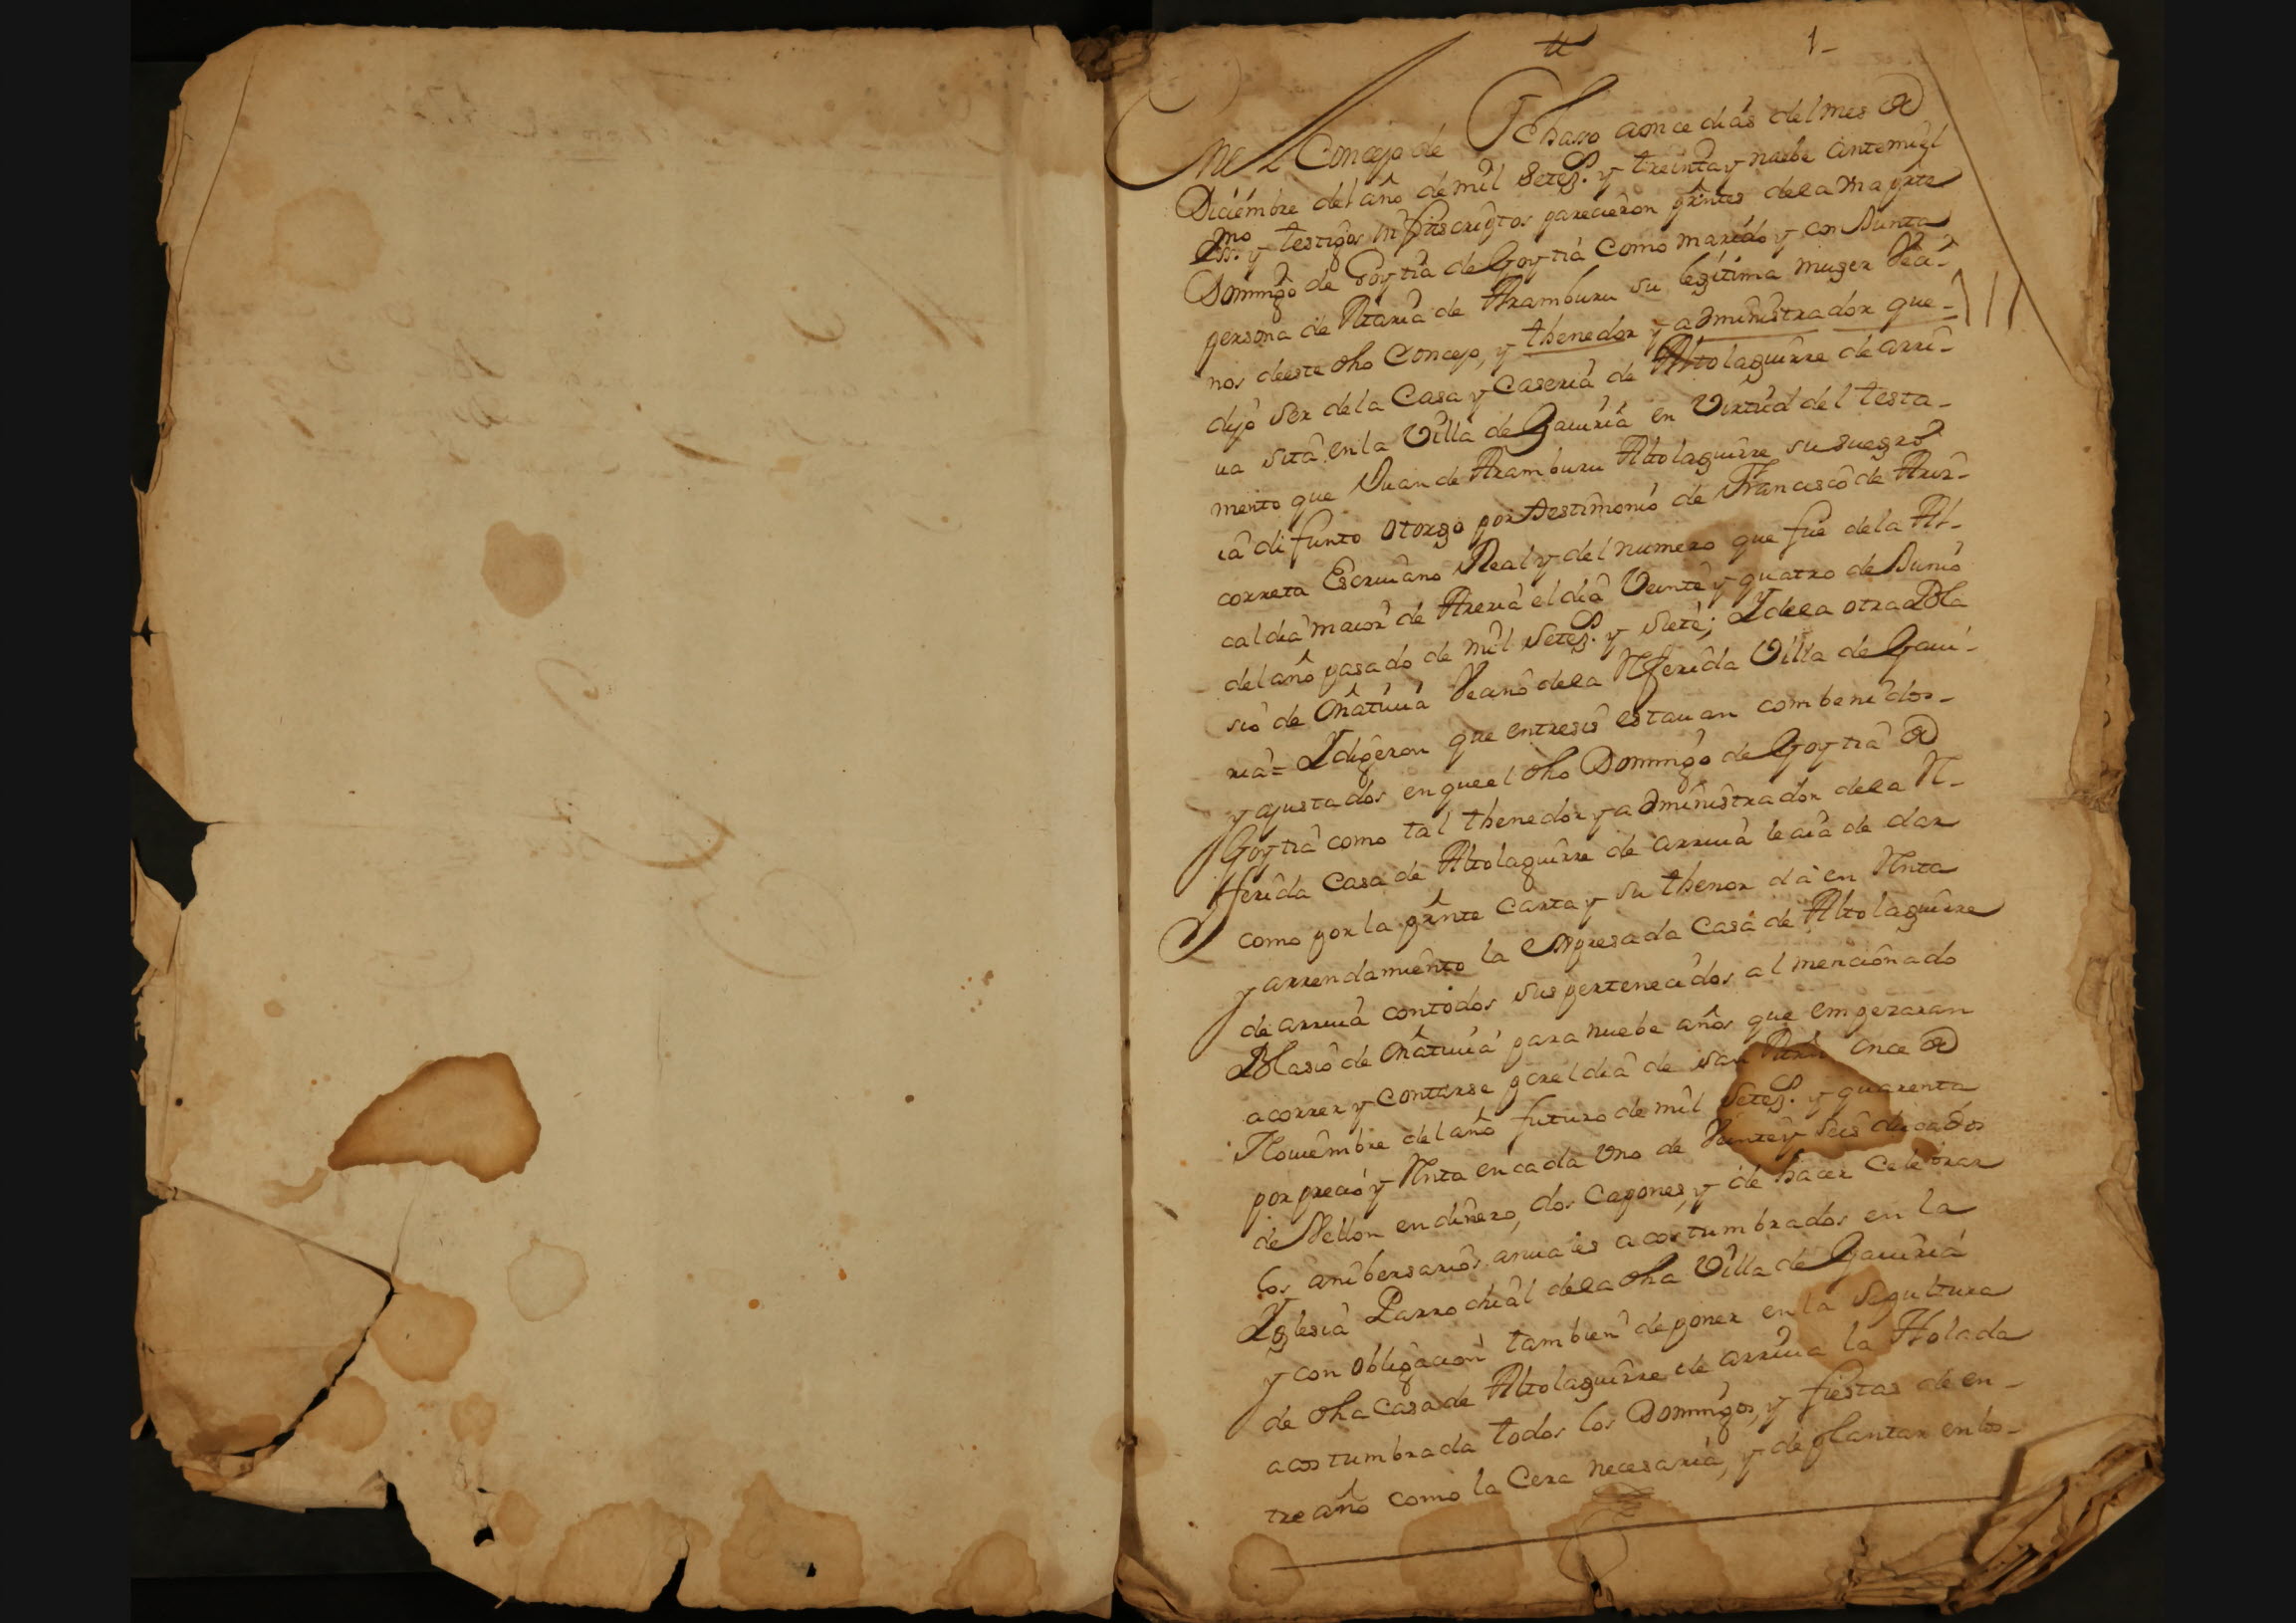 tt
1-
En el Concejo de Ichaso a once dias del mes de
Diciembre del año de mil setes. y treinta y nuebe ante mi el
ssno. y testigos infrascriptos parecieron prntes dela una prte
Domingo de Goytia de Goytia como marido y conJunta
persona de Maria de Aramburu su legitima muger veci-
nos deeste dho Concejo, y thenedor y administrador que-
dijo ser dela Casa y Caseria de Altolaguirre de arri-
ua sita en la Villa de Gauiria en Virtud del testa-
mento que Juan de Aramburu Altolaguirre su suegro
ia difunto otorgo por testimonio de Francisco de Aris-
correta Escriuano Real y del numero que fue dela Al-
caldia maior de Areria el dia Veinte y quatro de Junio
del año pasado de mil setes. y siete; Y dela otra Bla
sio de Oñatiuia Veano dela Referida Villa de Gaui-
ria= Y digeron que entresi estauan combenidos-
y ajustados en que el dho Domingo de Goytia de
Goytia como tal thenedor y administrador dela R-
eferida Casa de Altolaguirre de arriua le aia de dar
como por la prnte Carta y su thenor da en Rnta
y arrendamiento la Expresada Casa de Altolaguirre
de arriua contodos sus pertenecidos al mencionado
Blasio de Oñatiuia para nuebe años que empezaran
a correr y contarse por el dia de san Mrn once de
Nouiembre del año futuro de mil setes. y quarenta
por precio y Rnta en cada Uno de Veinte y seis ducados
de Vellon en dinero, dos Capones, y de hacer Celebrar
los anibersarios anuales acostumbrados en la
Yglesia Parrochial dela dha Villa de Gauiria
y con obligacion tambien de poner en la sepultura
de dha Casa de Altolaguirre de arriua la Holada
acostumbrada todos los Domingos, y fiestas de en-
tre año como la Cera necesaria, y de plantar en los-